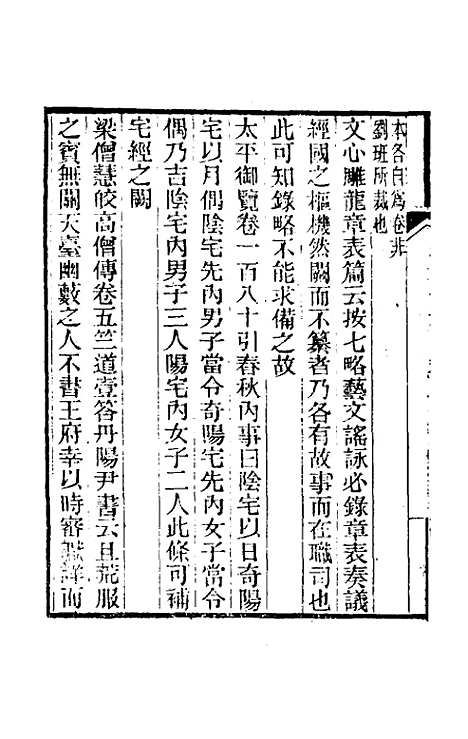 本各自爲卷非
劉班所裁也
文心雕龍章表篇云按七略藝文謠詠必錄章表奏議
經國之樞機然闕而不纂者乃各有故事而在職司也
此可知錄略不能求備之故
太平御覽卷一百八十引春秋內事曰陰宅以日奇陽
宅以月偶陰宅先內男子當令奇陽宅先內女子當令
偶乃吉陰宅內男子三人陽宅內女子二人此條可補
宅經之闕
梁僧慧皎高僧傳卷五竺道壹答丹陽尹書云且荒服
之賓無關天臺幽藪之人不書王府幸以時審詳而